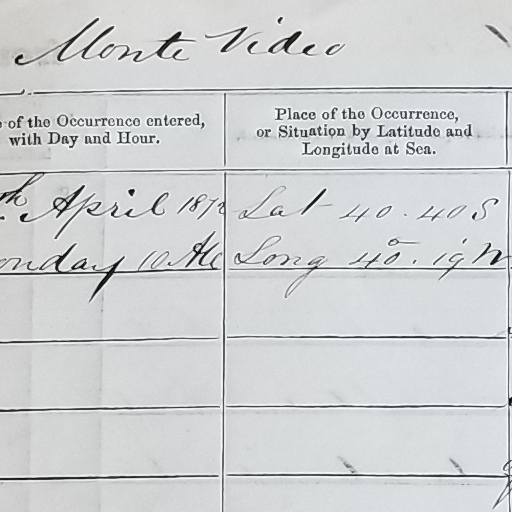 Monte Video
of the Occurrence entered, with Day and Hour.
Place of the Occurrence, or Situation by Latitude and Longitude at Sea.
th April 187
Lat 40.40 S
onday 10
Long 40°. 19 W